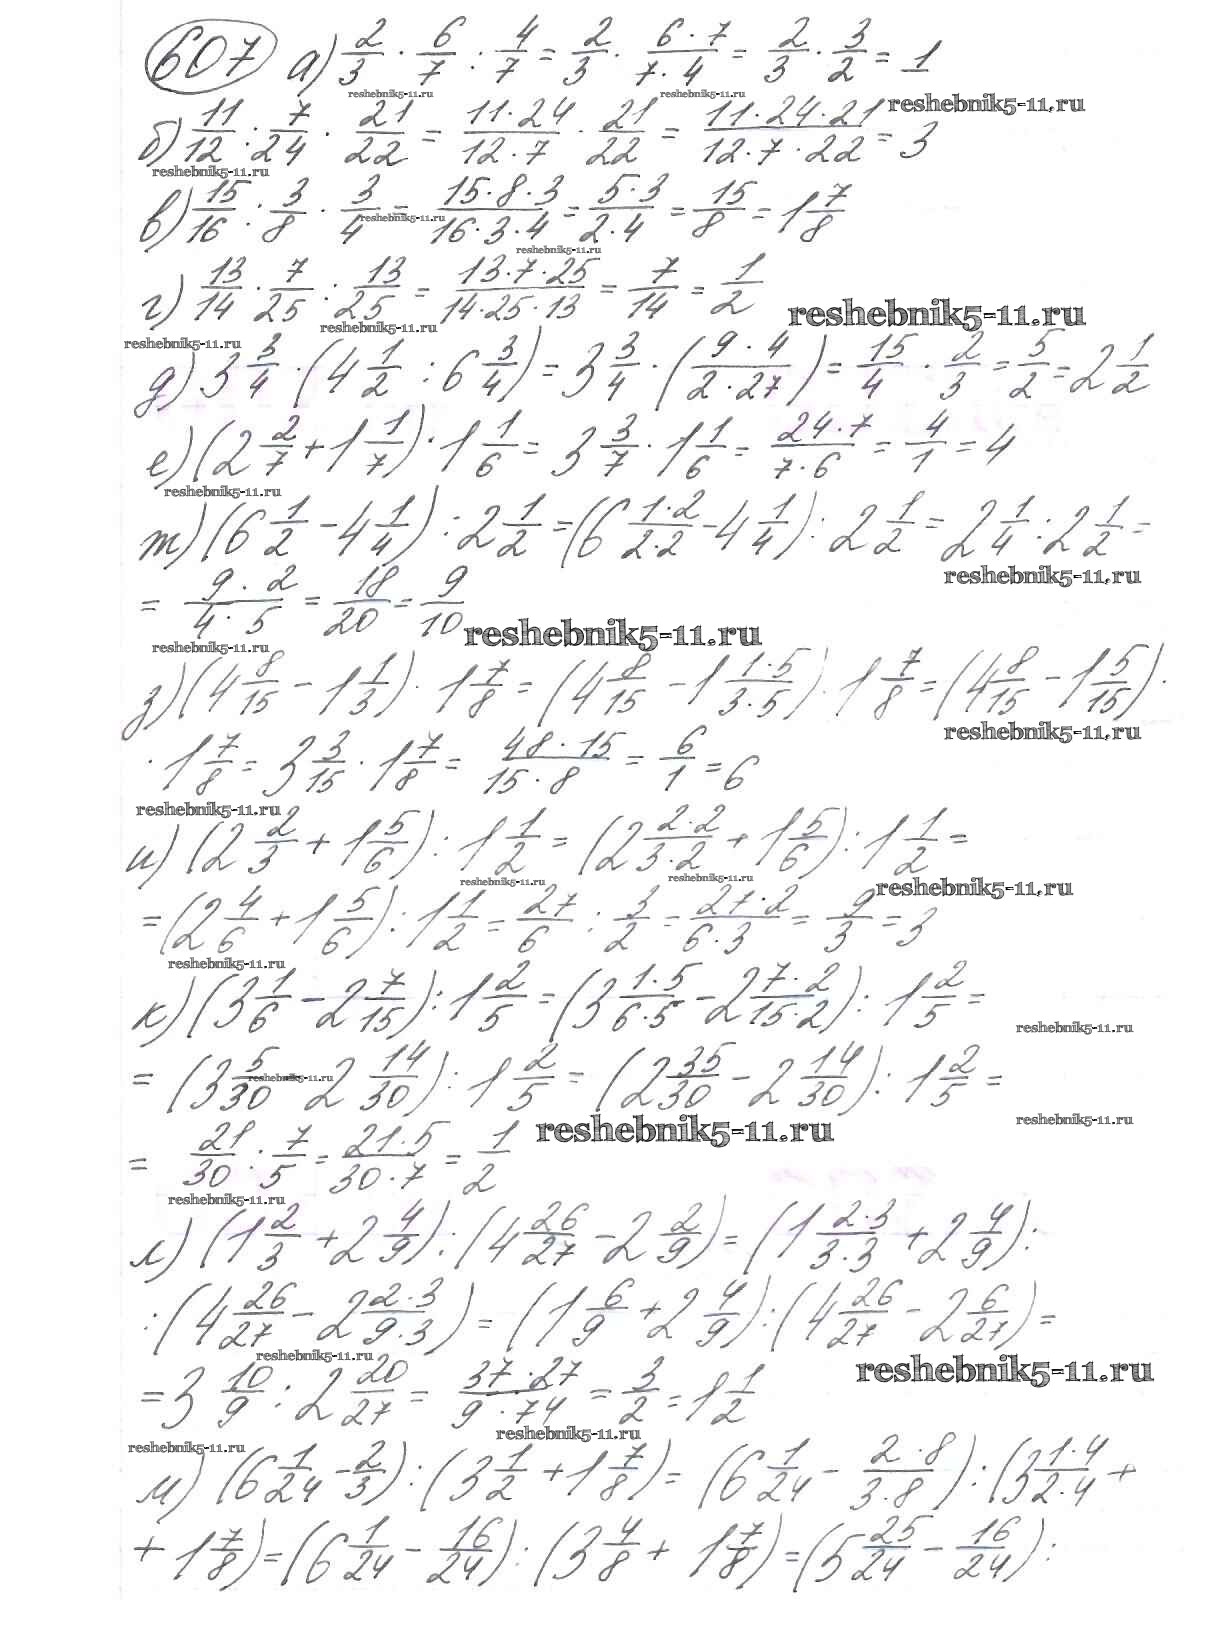 607 а) 2/3 · 6/7 : 4/7 = 2/3 · (6·7)/(7·4) = 2/3 · 3/2 = 1
reshebnik5-11.ru reshebnik5-11.ru reshebnik5-11.ru
б) 11/12 : 7/24 · 21/22 = (11·24)/(12·7) · 21/22 = (11·24·21)/(12·7·22) = 3
reshebnik5-11.ru
в) 15/16 : 3/8 · 3/4 = (15·8·3)/(16·3·4) = (5·3)/(2·4) = 15/8 = 1 7/8
reshebnik5-11.ru
reshebnik5-11.ru
г) 13/14 · 7/25 : 13/25 = (13·7·25)/(14·25·13) = 7/14 = 1/2
reshebnik5-11.ru reshebnik5-11.ru
reshebnik5-11.ru
д) 3 3/4 · (4 1/2 : 6 3/4) = 3 3/4 · ((9·4)/(2·27)) = 15/4 · 2/3 = 5/2 = 2 1/2
е) (2 2/7 + 1 1/7) · 1 1/6 = 3 3/7 · 1 1/6 = (24·7)/(7·6) = 4/1 = 4
reshebnik5-11.ru
ж) (6 1/2 - 4 1/4) : 2 1/2 = (6 (1·2)/(2·2) - 4 1/4) : 2 1/2 = 2 1/4 : 2 1/2 =
reshebnik5-11.ru
= (9·2)/(4·5) = 18/20 = 9/10
reshebnik5-11.ru
reshebnik5-11.ru
з) (4 8/15 - 1 1/3) · 1 7/8 = (4 8/15 - 1 (1·5)/(3·5)) · 1 7/8 = (4 8/15 - 1 5/15) ·
reshebnik5-11.ru
· 1 7/8 = 3 3/15 · 1 7/8 = (48·15)/(15·8) = 6/1 = 6
reshebnik5-11.ru
и) (2 2/3 + 1 5/6) : 1 1/2 = (2 (2·2)/(3·2) + 1 5/6) : 1 1/2 =
reshebnik5-11.ru reshebnik5-11.ru reshebnik5-11.ru
= (2 4/6 + 1 5/6) : 1 1/2 = 27/6 : 3/2 = (27·2)/(6·3) = 9/3 = 3
reshebnik5-11.ru
к) (3 1/6 - 2 7/15) : 1 2/5 = (3 (1·5)/(6·5) - 2 (7·2)/(15·2)) : 1 2/5 =
reshebnik5-11.ru
= (3 5/30 - 2 14/30) : 1 2/5 = (2 35/30 - 2 14/30) : 1 2/5 =
reshebnik5-11.ru
reshebnik5-11.ru
= 21/30 : 7/5 = (21·5)/(30·7) = 1/2
reshebnik5-11.ru
reshebnik5-11.ru
л) (1 2/3 + 2 4/9) : (4 26/27 - 2 2/9) = (1 (2·3)/(3·3) + 2 4/9) :
: (4 26/27 - 2 (2·3)/(9·3)) = (1 6/9 + 2 4/9) : (4 26/27 - 2 6/27) =
reshebnik5-11.ru reshebnik5-11.ru
= 3 10/9 : 2 20/27 = (37·27)/(9·74) = 3/2 = 1 1/2
reshebnik5-11.ru
reshebnik5-11.ru
м) (6 1/24 - 2/3) : (3 1/2 + 1 7/8) = (6 1/24 - (2·8)/(3·8)) : (3 (1·4)/(2·4) +
+ 1 7/8) = (6 1/24 - 16/24) : (3 4/8 + 1 7/8) = (5 25/24 - 16/24) :